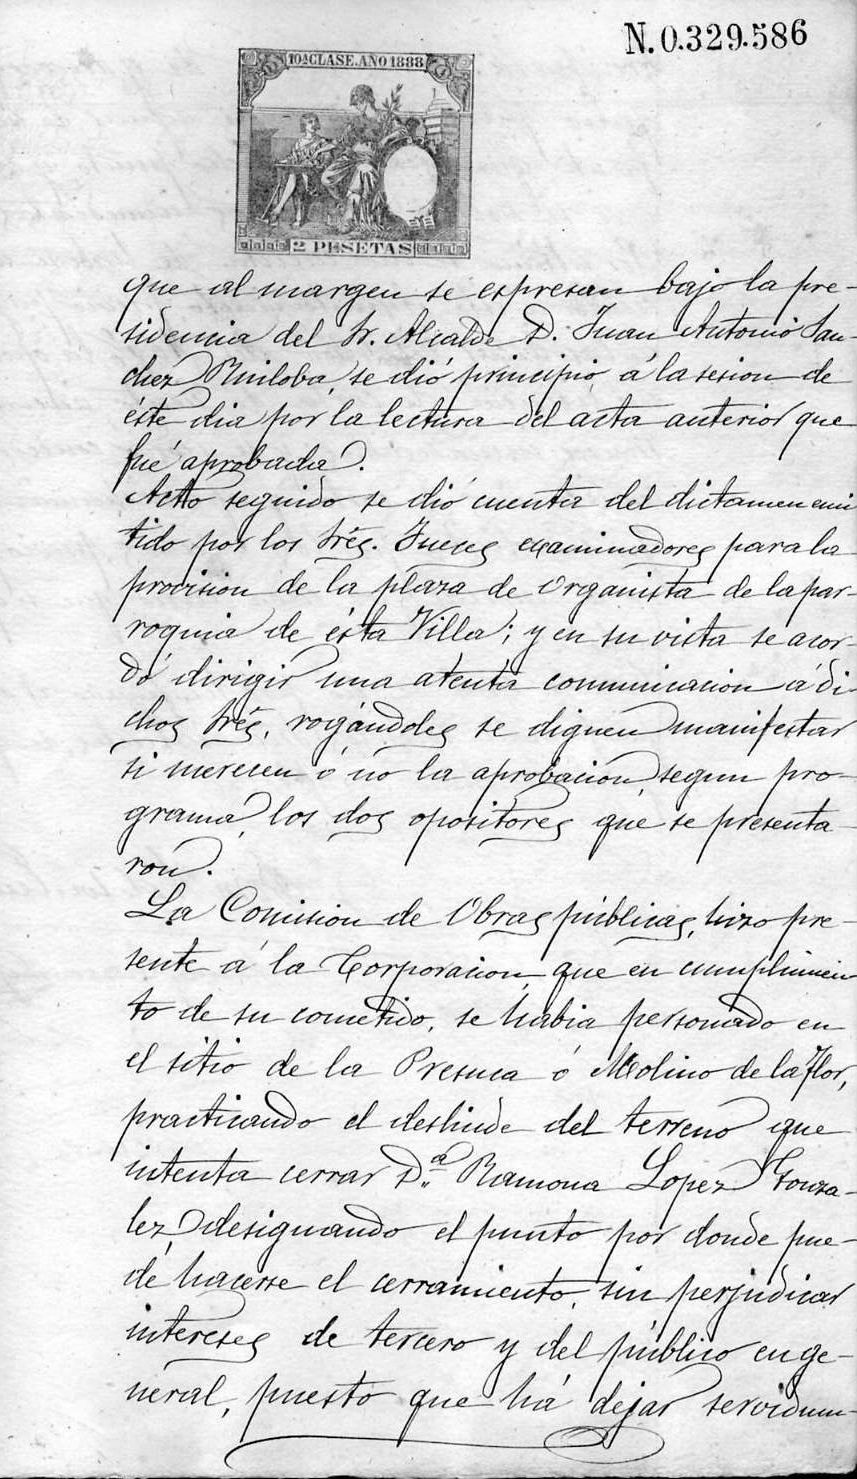 N.0.329.586
10ª CLASE. AÑO 1888
2 PESETAS
que al margen se espresan bajo la pre-
sidencia del Sr. Alcalde D. Juan Antonio San-
chez Ruiloba, se dió principio á la sesion de
éste dia por la lectura del acta anterior que
fué aprobada.
Acto seguido se dió cuenta del dictamen emi
tido por los Srês. Jueces examinadores para la
provision de la plaza de Organista de la par-
roquia de ésta Villa; y en su vista se acor-
dó dirigir una atenta comunicacion á di
chos Srês, rogándoles se dignen manifestar
si merecen ó no la aprobacion, segun pro-
grama, los dos opositores que se presenta-
ron.
La Comision de Obras públicas, hizo pre-
sente á la Corporacion, que en cumplimien
to de su cometido, se habia personado en
el sitio de la Presuca ó Molino de la Flor,
practicando el deslinde del terreno que
intenta cerrar D.ª Ramona Lopez Gonza-
lez, designando el punto por donde pue-
de hacerse el cerramiento, sin perjudicar
intereses de tercero y del público en ge-
neral, puesto que há dejar servidum-